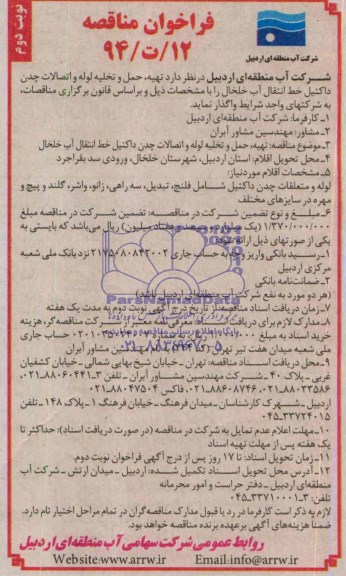 نوبت دوم
فراخوان مناقصه
۹۴/ت/۱۲
شرکت آب منطقه ای اردبیل
شرکت آب منطقه‌ای اردبیل درنظر دارد تهیه، حمل و تخلیه لوله و اتصالات چدن
داکتیل خط انتقال آب خلخال را با مشخصات ذیل و براساس قانون برگزاری مناقصات،
به شرکتهای واجد شرایط واگذار نماید.
۱-کارفرما: شرکت آب منطقه‌ای اردبیل
۲-مشاور: مهندسین مشاور آبران
۳-موضوع مناقصه: تهیه، حمل و تخلیه لوله و اتصالات چدن داکتیل خط انتقال آب خلخال
۴-محل تحویل اقلام: استان اردبیل، شهرستان خلخال، ورودی سد بفراجرد
۵-مشخصات اقلام موردنیاز:
لوله و متعلقات چدن داکتیل شامل فلنج، تبدیل، سه راهی، زانو، واشر، گلند و پیچ و
مهره در سایزهای مختلف
۶-مبلغ و نوع تضمین شرکت در مناقصه: تضمین شرکت در مناقصه مبلغ
۱/۳۷۰/۰۰۰/۰۰۰ (یک میلیارد و سیصد و هفتاد میلیون) ریال می‌باشد که بایستی به
یکی از صورتهای ذیل ارائه شود:
۱-رسید بانکی واریز وجه به حساب جاری ۲۱۷۵۰۸۰۸۴۲۰۰۲ نزد بانک ملی شعبه
مرکزی اردبیل
۲-ضمانت‌نامه بانکی
(هر دو مورد به نفع شرکت آب منطقه‌ای اردبیل باشد)
۷-زمان دریافت اسناد مناقصه: از تاریخ درج آگهی نوبت دوم به مدت یک هفته
۸-مدارک لازم برای دریافت اسناد: معرفی‌نامه معتبر از شرکت مناقصه‌گر، هزینه
خرید اسناد به مبلغ ریال به حساب جاری
ملی شعبه میدان هفت تیر تهران بنام مهندسین مشاور آبران
۹-محل دریافت اسناد مناقصه: تهران - خیابان شیخ بهایی شمالی - خیابان کشفیان
غربی - پلاک ۴۰ - شرکت مهندسین مشاور آبران - تلفن ۳-۸۸۰۶۰۴۴۱-۰۲۱،
۸۸۰۳۳۵۸۶-۰۲۱، ۸۸۶۰۸۷۴۶-۰۲۱، فاکس ۸۸۰۴۷۵۰۴-۰۲۱
اردبیل - شهرک کارشناسان - میدان فرهنگ - خیابان فرهنگ ۱ - پلاک ۱۴۸ - تلفن
۳۳۷۲۴۰۱۵-۰۴۵
۱۰-مهلت اعلام عدم تمایل به شرکت در مناقصه (در صورت دریافت اسناد): حداکثر تا
یک هفته پس از مهلت تهیه اسناد
۱۱-زمان تحویل اسناد: تا ۱۷ روز پس از درج آگهی فراخوان نوبت دوم.
۱۲-آدرس محل تحویل اسناد تکمیل شده: اردبیل - میدان ارتش - شرکت آب
منطقه‌ای اردبیل - دفتر حراست و امور محرمانه
تلفن: ۳-۳۳۷۱۰۰۰۱-۰۴۵
لازم به ذکر است کارفرما در رد یا قبول مدارک مناقصه‌گران در تمام مراحل اختیار تام دارد.
ضمنا هزینه‌های آگهی برعهده برنده مناقصه خواهد بود.
روابط عمومی شرکت سهامی آب منطقه‌ای اردبیل
Website:www.arrw.ir Email:info@arrw.ir
ParsNamadData
۰۲۱-۸۸۳۴۹۶۷۰-۵